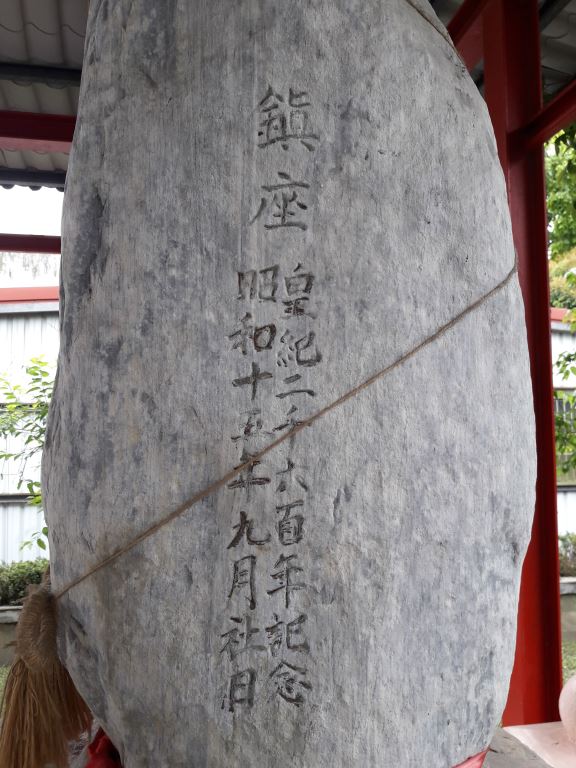 鎮座
皇紀二千六百年記念
昭和十五年九月社日